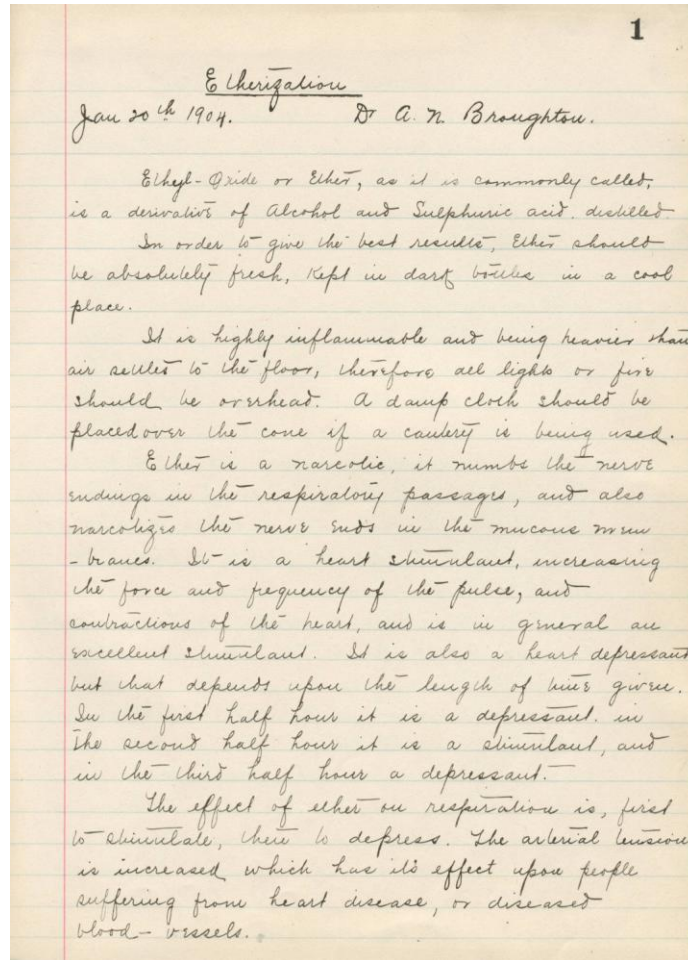 1
Etherization
Jan 20th 1904. Dr A. N. Broughton.
Ethyl-Oxide or Ether, as it is commonly called,
is a derivative of Alcohol and Sulphuric acid distilled.
In order to give the best results, Ether should
be absolutely fresh, kept in dark bottles in a cool
place.
It is highly inflammable and being heavier than
air settles to the floor, therefore all lights or fire
should be overhead. A damp cloth should be
placed over the cone if a cautery is being used.
Ether is a narcotic, it numbs the nerve
endings in the respiratory passages, and also
narcotizes the nerve ends in the mucous mem
-branes. It is a heart stimulant, increasing
the force and frequency of the pulse, and
contractions of the heart, and is in general an
excellent stimulant. It is also a heart depressant
but that depends upon the length of time given.
In the first half hour it is a depressant. in
the second half hour it is a stimulant, and
in the third half hour a depressant.
The effect of ether on respiration is, first
to stimulate, then to depress. The arterial tension
is increased which has it's effect upon people
suffering from heart disease, or diseased
blood-vessels.